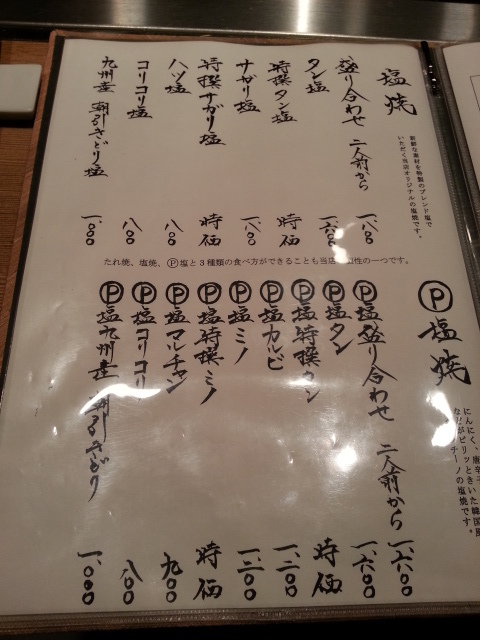 塩焼
新鮮な素材を特製のブレンド塩で
いただく当店オリジナルの塩焼です。
盛り合わせ 二人前から 一、八〇〇
タン塩 一、六〇〇
特撰タン塩 時価
サガリ塩 一、八〇〇
特撰サガリ塩 時価
ハツ塩 八〇〇
コリコリ塩 八〇〇
九州産 朝引きどり塩 一、〇〇〇
たれ焼、塩焼、Ⓟ塩と3種類の食べ方ができることも当店 性の一つです。
Ⓟ塩焼
にんにく、唐辛子
などがピリッときいた韓国風
チーノの塩焼です。
Ⓟ塩盛り合わせ 二人前から 一、六〇〇
Ⓟ塩タン 一、六〇〇
Ⓟ塩特撰タン 時価
Ⓟ塩カルビ 一、二〇〇
Ⓟ塩ミノ 一、二〇〇
Ⓟ塩特撰ミノ 時価
Ⓟ塩マルチャン 九〇〇
Ⓟ塩コリコリ 八〇〇
Ⓟ塩九州産 朝引きどり 一、〇〇〇